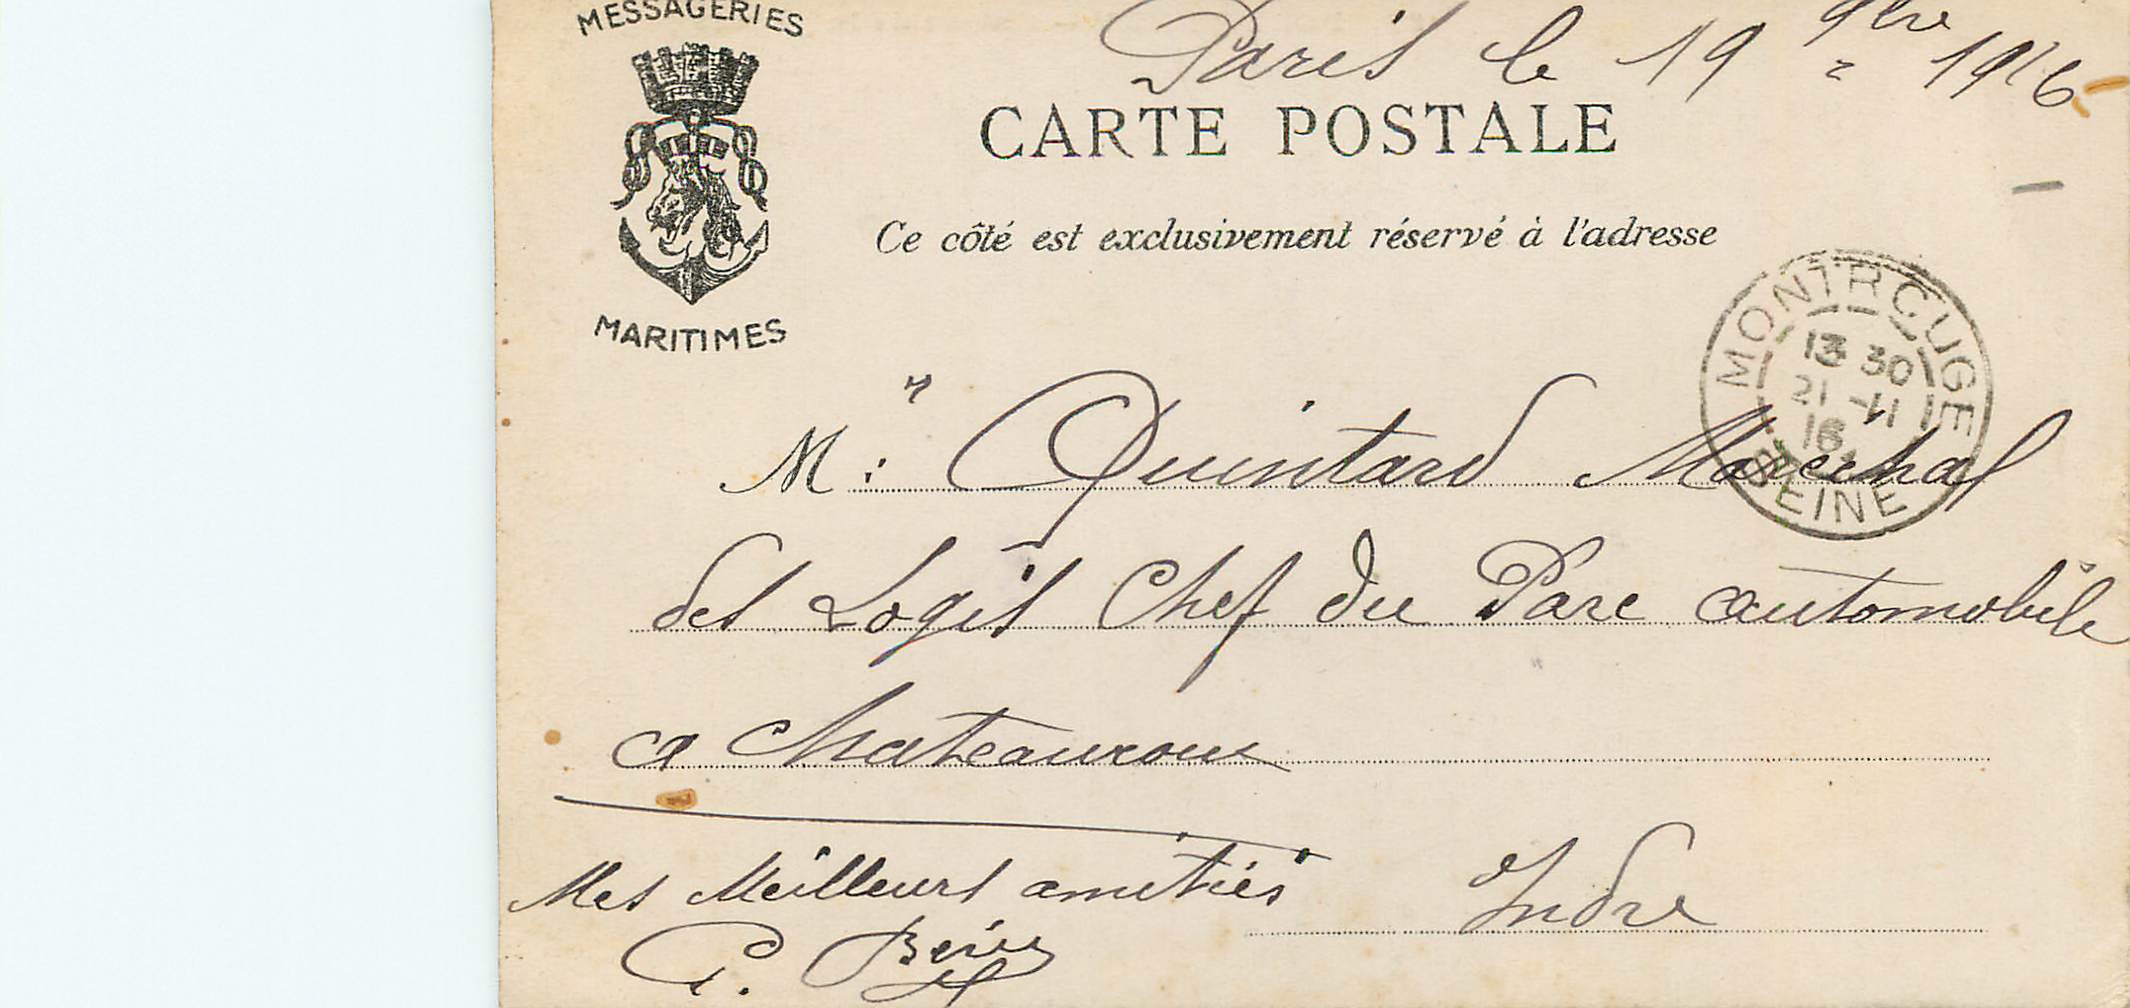 MESSAGERIES
MARITIMES
Paris le 19 9bre 1916
CARTE POSTALE
Ce côté est exclusivement réservé à l'adresse
MONTROUGE
13 30
21 -11
16
SEINE
Mr Quintard Marechal
des Logis Chef du Parc automobile
a Chateauroux
Mes Meilleurs amitiés
Indre